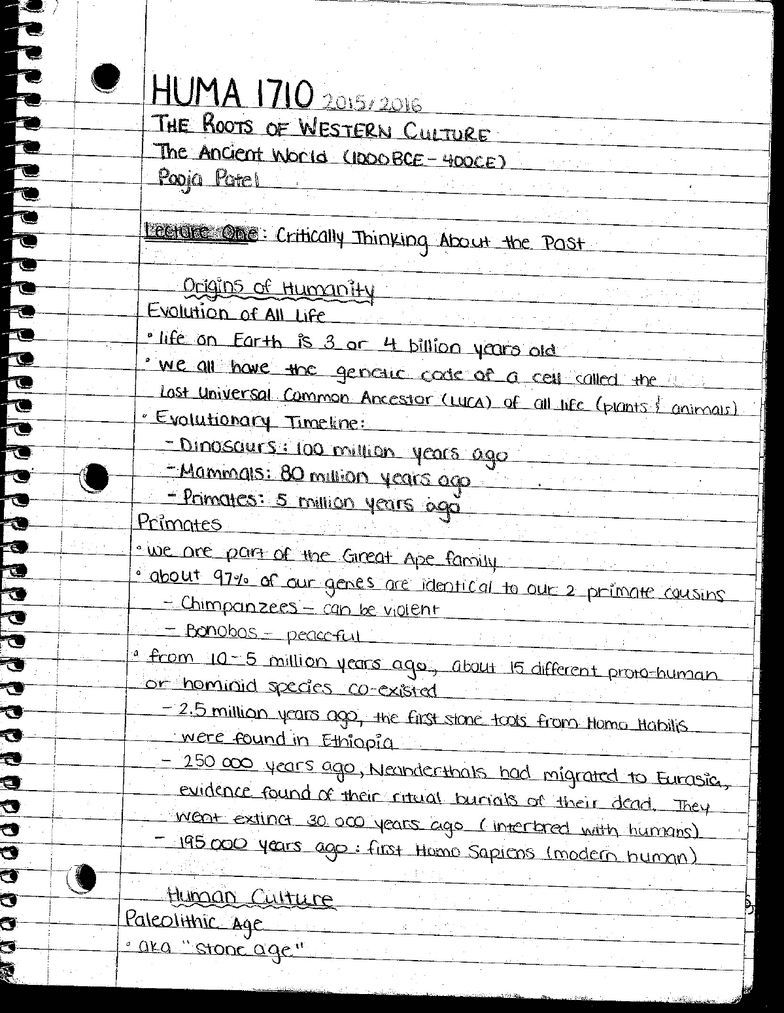 HUMA 1710 2015/2016
THE ROOTS OF WESTERN CULTURE
The Ancient World (1000BCE - 400CE)
Pooja Patel
Lecture One: Critically Thinking About the Past
Origins of Humanity
Evolution of All Life
• life on Earth is 3 or 4 billion years old
• we all have the genetic code of a cell called the
Last Universal Common Ancestor (LUCA) of all life (plants & animals)
• Evolutionary Timeline:
- Dinosaurs: 100 million years ago
- Mammals: 80 million years ago
- Primates: 5 million years ago
Primates
• we are part of the Great Ape family
• about 97% of our genes are identical to our 2 primate cousins
- Chimpanzees - can be violent
- Bonobos - peaceful
• from 10-5 million years ago, about 15 different proto-human
or hominid species co-existed
- 2.5 million years ago, the first stone tools from Homo Habilis
were found in Ethiopia
- 250 000 years ago, Neanderthals had migrated to Eurasia,
evidence found of their ritual burials of their dead. They
went extinct 30 000 years ago (interbred with humans)
- 195 000 years ago: first Homo Sapiens (modern human)
Human Culture
Paleolithic Age
• aka "stone age"